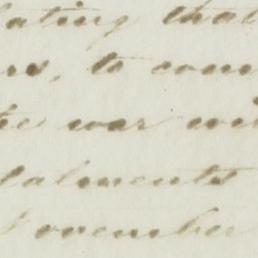 ating that
rs, to com
the war wi
talments
November